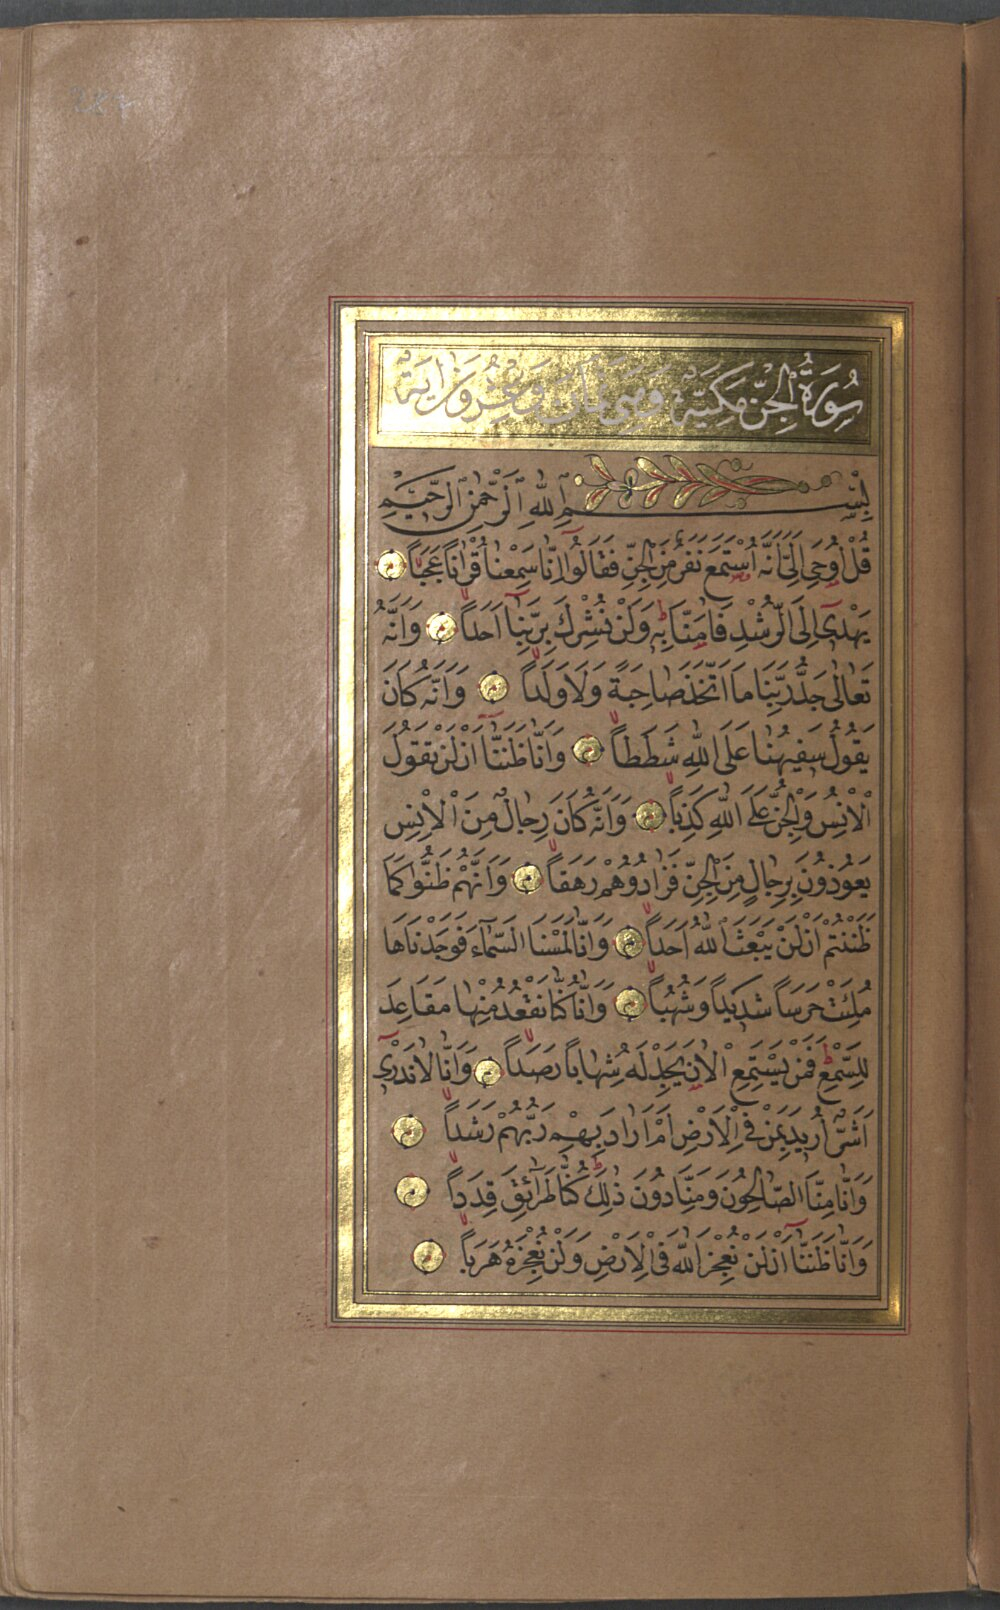 سُورَةُ الْجِنِّ مَكِّيَّةٌ وَهِيَ ثَمَانٌ وَعِشْرُونَ اٰيَةً
بِسْمِ اللهِ الرَّحْمٰنِ الرَّحِيمِ
قُلْ اُو۫حِيَ اِلَيَّ اَنَّهُ اسْتَمَعَ نَفَرٌ مِنَ الْجِنِّ فَقَالُٓوا اِنَّا سَمِعْنَا قُرْاٰنًا عَجَبًا
يَهْدٖٓي اِلَى الرُّشْدِ فَاٰمَنَّا بِهٖ وَلَنْ نُشْرِكَ بِرَبِّنَٓا اَحَدًا وَاَنَّهُ
تَعَالٰى جَدُّ رَبِّنَا مَا اتَّخَذَ صَاحِبَةً وَلَا وَلَدًا وَاَنَّهُ كَانَ
يَقُولُ سَفِيهُنَا عَلَى اللهِ شَطَطًا وَاَنَّا ظَنَنَّٓا اَنْ لَنْ تَقُولَ
الْاِنْسُ وَالْجِنُّ عَلَى اللهِ كَذِبًا وَاَنَّهُ كَانَ رِجَالٌ مِنَ الْاِنْسِ
يَعُوذُونَ بِرِجَالٍ مِنَ الْجِنِّ فَزَادُوهُمْ رَهَقًا وَاَنَّهُمْ ظَنُّوا كَمَا
ظَنَنْتُمْ اَنْ لَنْ يَبْعَثَ اللهُ اَحَدًا وَاَنَّا لَمَسْنَا السَّمَٓاءَ فَوَجَدْنَاهَا
مُلِئَتْ حَرَسًا شَدِيدًا وَشُهُبًا وَاَنَّا كُنَّا نَقْعُدُ مِنْهَا مَقَاعِدَ
لِلسَّمْعِ فَمَنْ يَسْتَمِعِ الْاٰنَ يَجِدْ لَهُ شِهَابًا رَصَدًا وَاَنَّا لَا نَدْرٖٓي
اَشَرٌّ اُرِيدَ بِمَنْ فِي الْاَرْضِ اَمْ اَرَادَ بِهِمْ رَبُّهُمْ رَشَدًا
وَاَنَّا مِنَّا الصَّالِحُونَ وَمِنَّا دُونَ ذٰلِكَ كُنَّا طَرَٓائِقَ قِدَدًا
وَاَنَّا ظَنَنَّٓا اَنْ لَنْ نُعْجِزَ اللهَ فِي الْاَرْضِ وَلَنْ نُعْجِزَهُ هَرَبًا